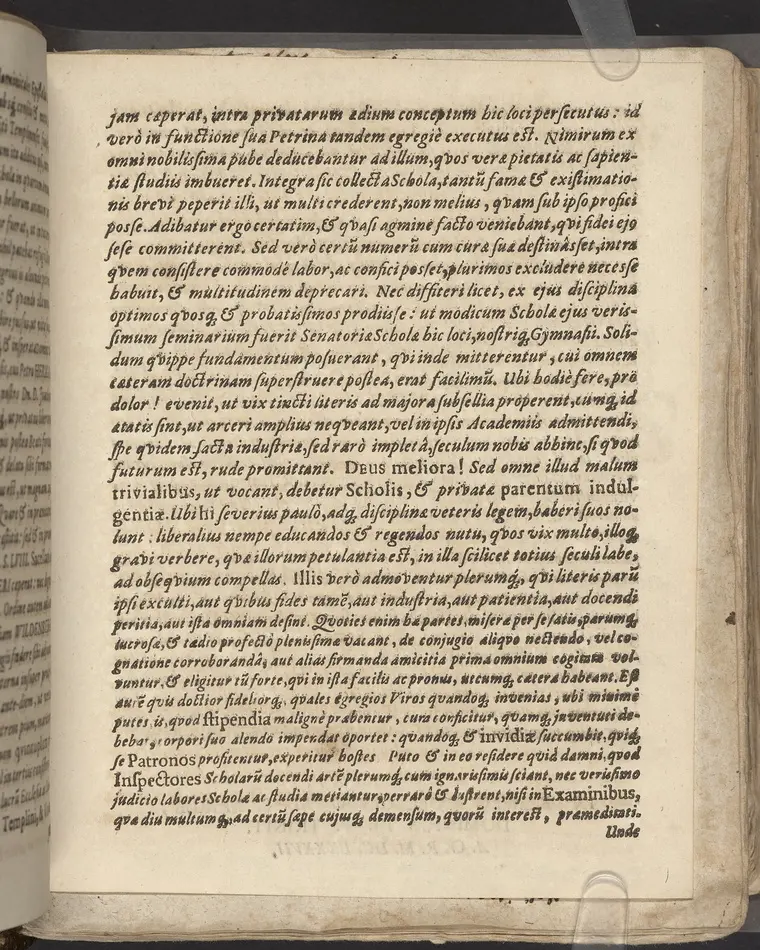 jam cœperat, intra privatarum ædium conceptum hic loci persecutus: id
verò in functione sua Petrina tandem egregiè executus est. Nimirum ex
omni nobilissima pube deducebantur ad illum, qvos veræ pietatis ac sapien-
tiæ studiis imbueret. Integra sic collecta Schola, tantũ famæ & existimatio-
nis brevi peperit illi, ut multi crederent, non melius, qvam sub ipso profici
posse. Adibatur ergo certatim, & qvasi agmine facto veniebant, qvi fidei ejꝰ
sese committerent. Sed verò certũ numerũ cum curæ suæ destinâsset, intra
qvem consistere commodè labor, ac confici posset, plurimos excludere necesse
habuit, & multitudinem deprecari. Nec diffiteri licet, ex ejus disciplina
optimos qvosq; & probatissimos prodiisse: ut modicum Scholæ ejus veris-
simum seminarium fuerit Senatoriæ Scholæ hic loci, nostriq; Gymnasii. Soli-
dum qvippe fundamentum posuerant, qvi inde mitterentur, cui omnem
cæteram doctrinam superstruere postea, erat facilimũ. Ubi hodiè fere, prô
dolor! evenit, ut vix tincti literis ad majora subsellia properent, cumq; id
ætatis sint, ut arceri amplius neqveant, vel in ipsis Academiis admittendi,
spe qvidem facta industriæ, sed rarò impletâ, seculum nobis abhinc, si qvod
futurum est, rude promittant. DEUS meliora! Sed omne illud malum
trivialibus, ut vocant, debetur Scholis, & privatæ parentum indul-
gentiæ. Ubi hi severius paulò, adq; disciplinæ veteris legem, haberi suos no-
lunt: liberalius nempe educandos & regendos nutu, qvos vix multo, illoq;
gravi verbere, qvæ illorum petulantia est, in illa scilicet totius seculi labe,
ad obseqvium compellas. Illis verò admoventur plerumq;, qvi literis parũ
ipsi exculti, aut qvibus fides tamẽ, aut industria, aut patientia, aut docendi
peritia, aut ista omnia desint. Qvoties enim hæ partes, miseræ per se satis, parumq;
lucrosæ, & tædio profectò plenissimæ vacant, de conjugio aliqvo nectendo, vel co-
gnatione corroborandâ, aut alias firmanda amicitia prima omnium cogitata vol-
vuntur, & eligitur tũ forte, qvi in ista facilis ac pronus, utcumq; cætera habeant. Est
autẽ qvis doctior fideliorq;, qvales egregios Viros qvandoq; invenias, ubi minimè
putes, is, qvod stipendia malignè præbentur, cura conficitur, qvamq; juventuti de-
bebat, corpori suo alendo impendat oportet: qvandoq; & invidiæ succumbit, qviq;
se Patronos profitentur, experitur hostes Puto & in eo residere qvid damni, qvod
Inspectores Scholarũ docendi artẽ plerumq; cum ignarissimis sciant, nec verissimo
judicio labores Scholæ ac studia metiantur, perrarò & lustrent, nisi in Examinibus,
qvæ diu multumq;, ad certũ sæpe cujusq; demensum, qvorũ interest, præmeditati.
Unde